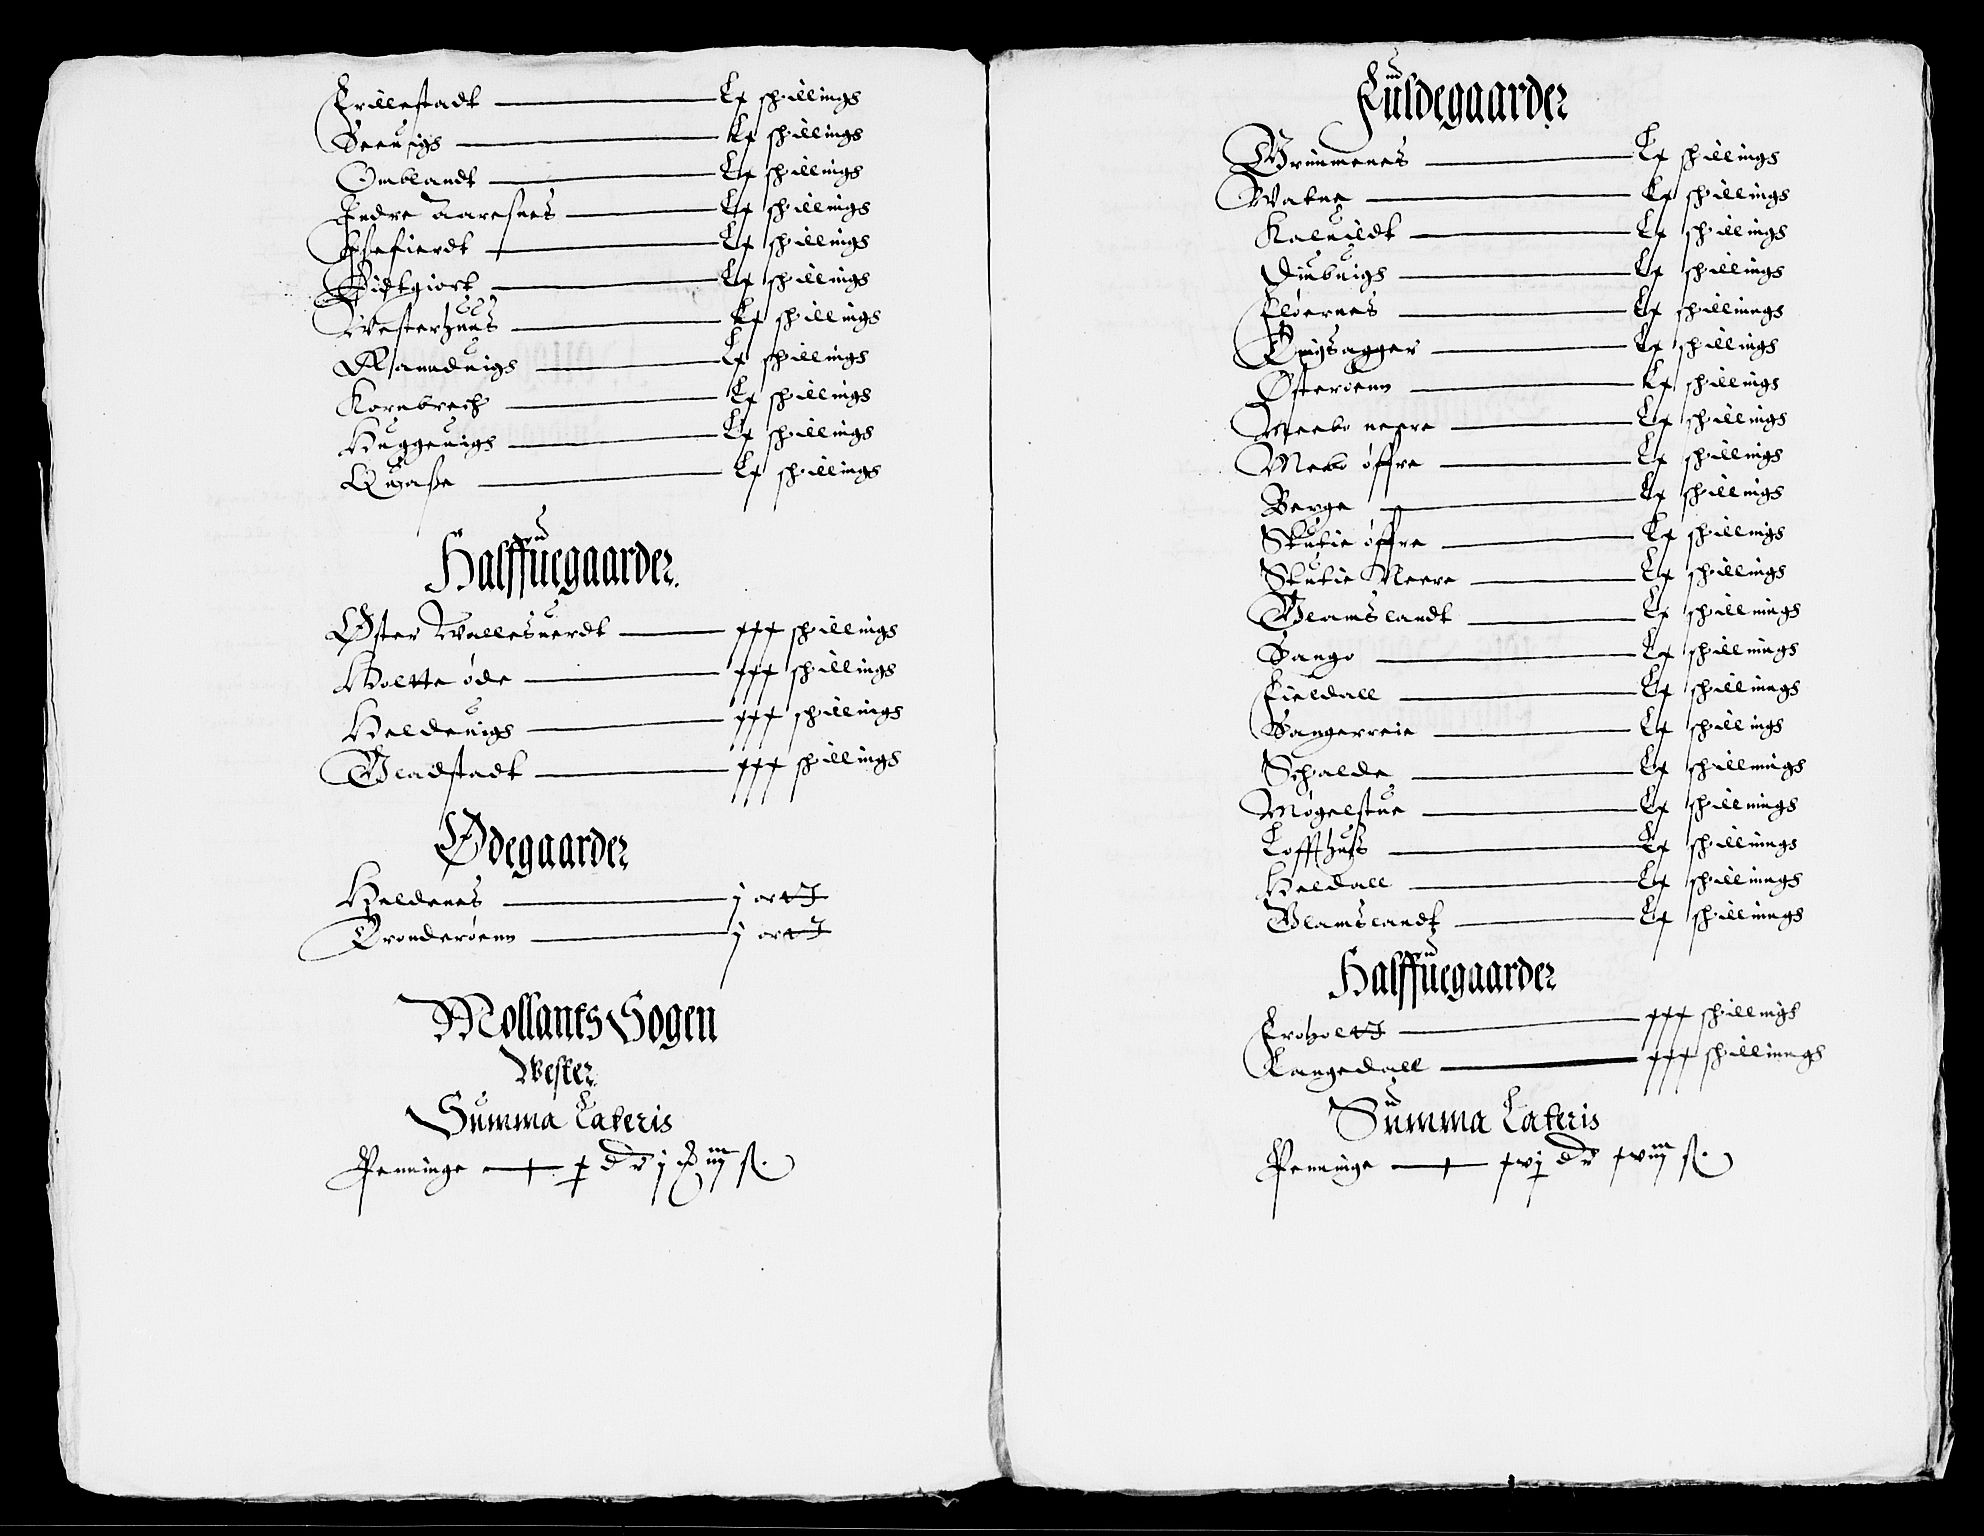 Frillestadt — Lx schillings
Seeuigs — Lx schillings
Omblandt — Lx schillings
Indre Aaresnes — Lx schillings
Esefierdt — Lx schillings
Eidtgiort — Lx schillings
Westerhuus — Lx schillings
Ranuduigs — Lx schillings
Kornbrech — Lx schillings
Huggeuigs — Lx schillings
Quaße — Lx schillings
Halffuegaarder.
Øster Wallesuerdt — xxx schillings
Holtte øde — xxx schillings
Heldeuigs — xxx schillings
Gladstadt — xxx schillings
Ødegaarder
Heldenes — j ortt
Tronderøenn — j ortt
Mollants Sogen
Wester
Summa Lateris
Penninge — x dr j ß.
Fuldegaarder
Grimmenes — Lx schillings
Watne — Lx schillings
Kaluildt — Lx schillings
Lx schillings
Fløernes — Lx schillings
Ringsagger — Lx schillings
Østerøenn — Lx schillings
Meebø neere — Lx schillings
Mebø øffre — Lx schillings
Berge — Lx schillings
Skutie øffre — Lx schillings
Skutie Neere — Lx schillings
Glamslandt — Lx schillings
Sango — Lx schillings
Fieldall — Lx schillings
Sangerreie — Lx schillings
Schalde — Lx schillings
Møgelstue — Lx schillings
Loffthuss — Lx schillings
Heldall — Lx schillings
Glamslandt — Lx schillings
Halffuegaarder
Froholtt — xxx schillings
Langedall — xxx schillings
Summa Lateris
Penninge — xvj dr xviij ß.